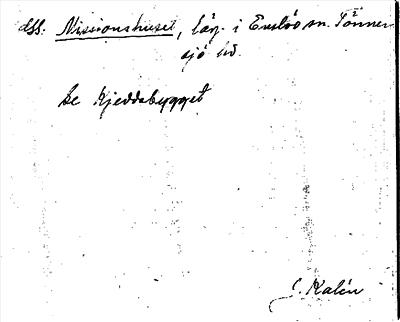 dss. Missionshuset, läg. i Enslöv sn. Tönner-
sjö hd.
Se Kjeddabygget
J. Kalén